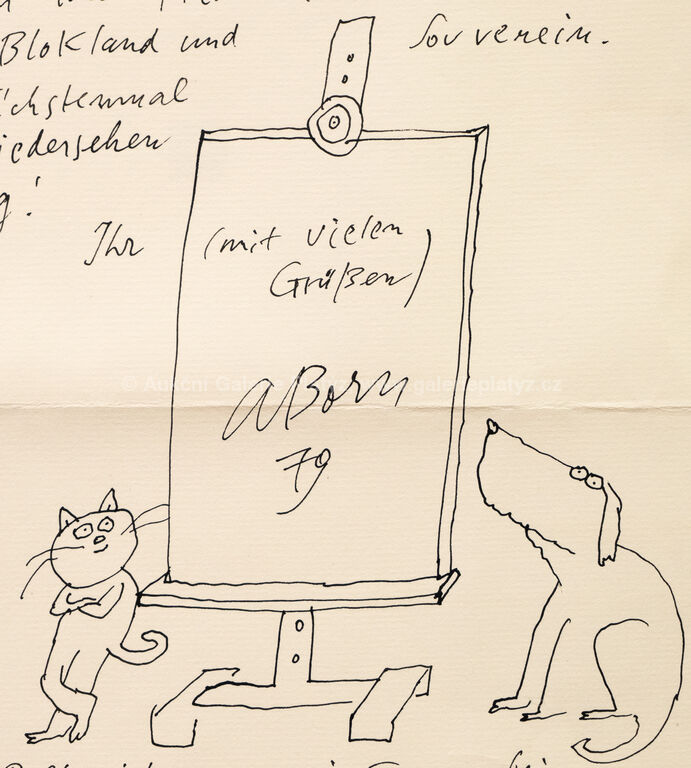 Blokland und Souverein.
ichstenmal
iedersehen
g!
Ihr (mit vielen
Grüßen)
© Aukční Galerie galerieplatyz.cz
ABorn
79